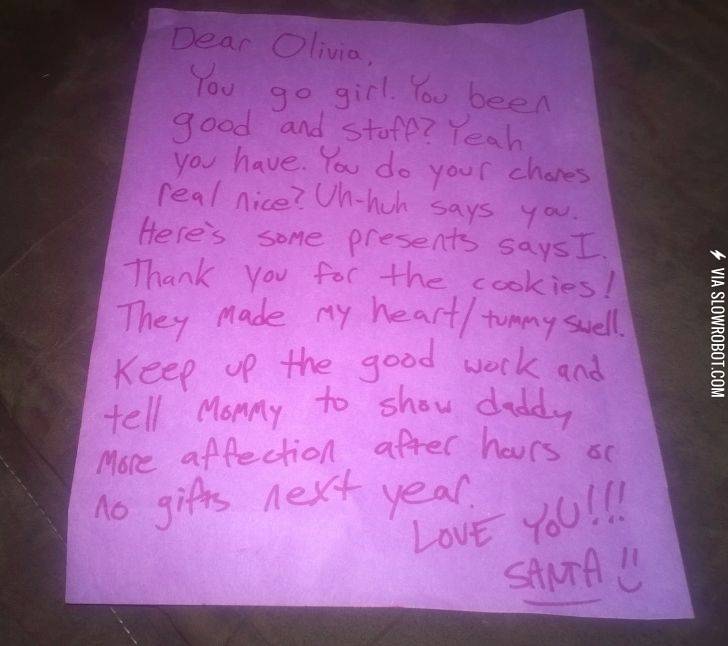 Dear Olivia,
You go girl. You been
good and stuff? Yeah
you have. You do your chores
real nice? Uh-huh says you.
Here's some presents says I.
Thank you for the cookies!
They made my heart/tummy swell.
Keep up the good work and
tell Mommy to show daddy
more affection after hours or
no gifts next year.
LOVE YOU!!!
SANTA
VIA SLOWROBOT.COM